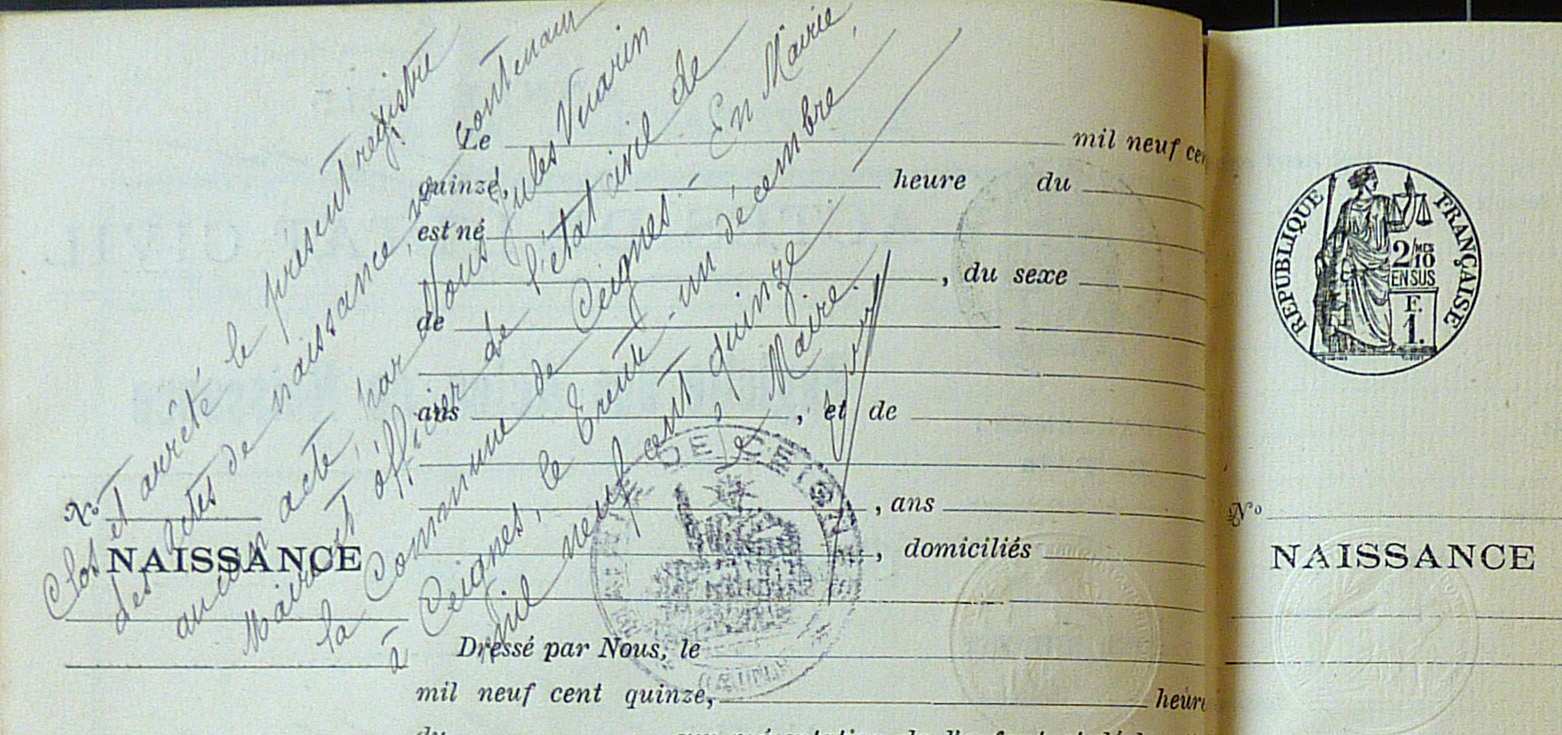 Clos et arrêté le présent registre
des actes de naissance, ne contenant
aucun acte, par Nous Jules Vuarin
Maire et officier de l'état civil de
la Commune de Ceignes. - En Mairie
à Ceignes, le trente-un décembre,
mil neuf cent quinze.
Le Maire.
Le mil neuf ce
quinze, heure du
est né
, du sexe
de
ans , et de
, ans
, domiciliés
Dressé par Nous, le
mil neuf cent quinze, heure
du
No
NAISSANCE
DE CEIGN
RÉPUBLIQUE FRANÇAISE
2/MES
10
EN SUS
F.
1.
No
NAISSANCE